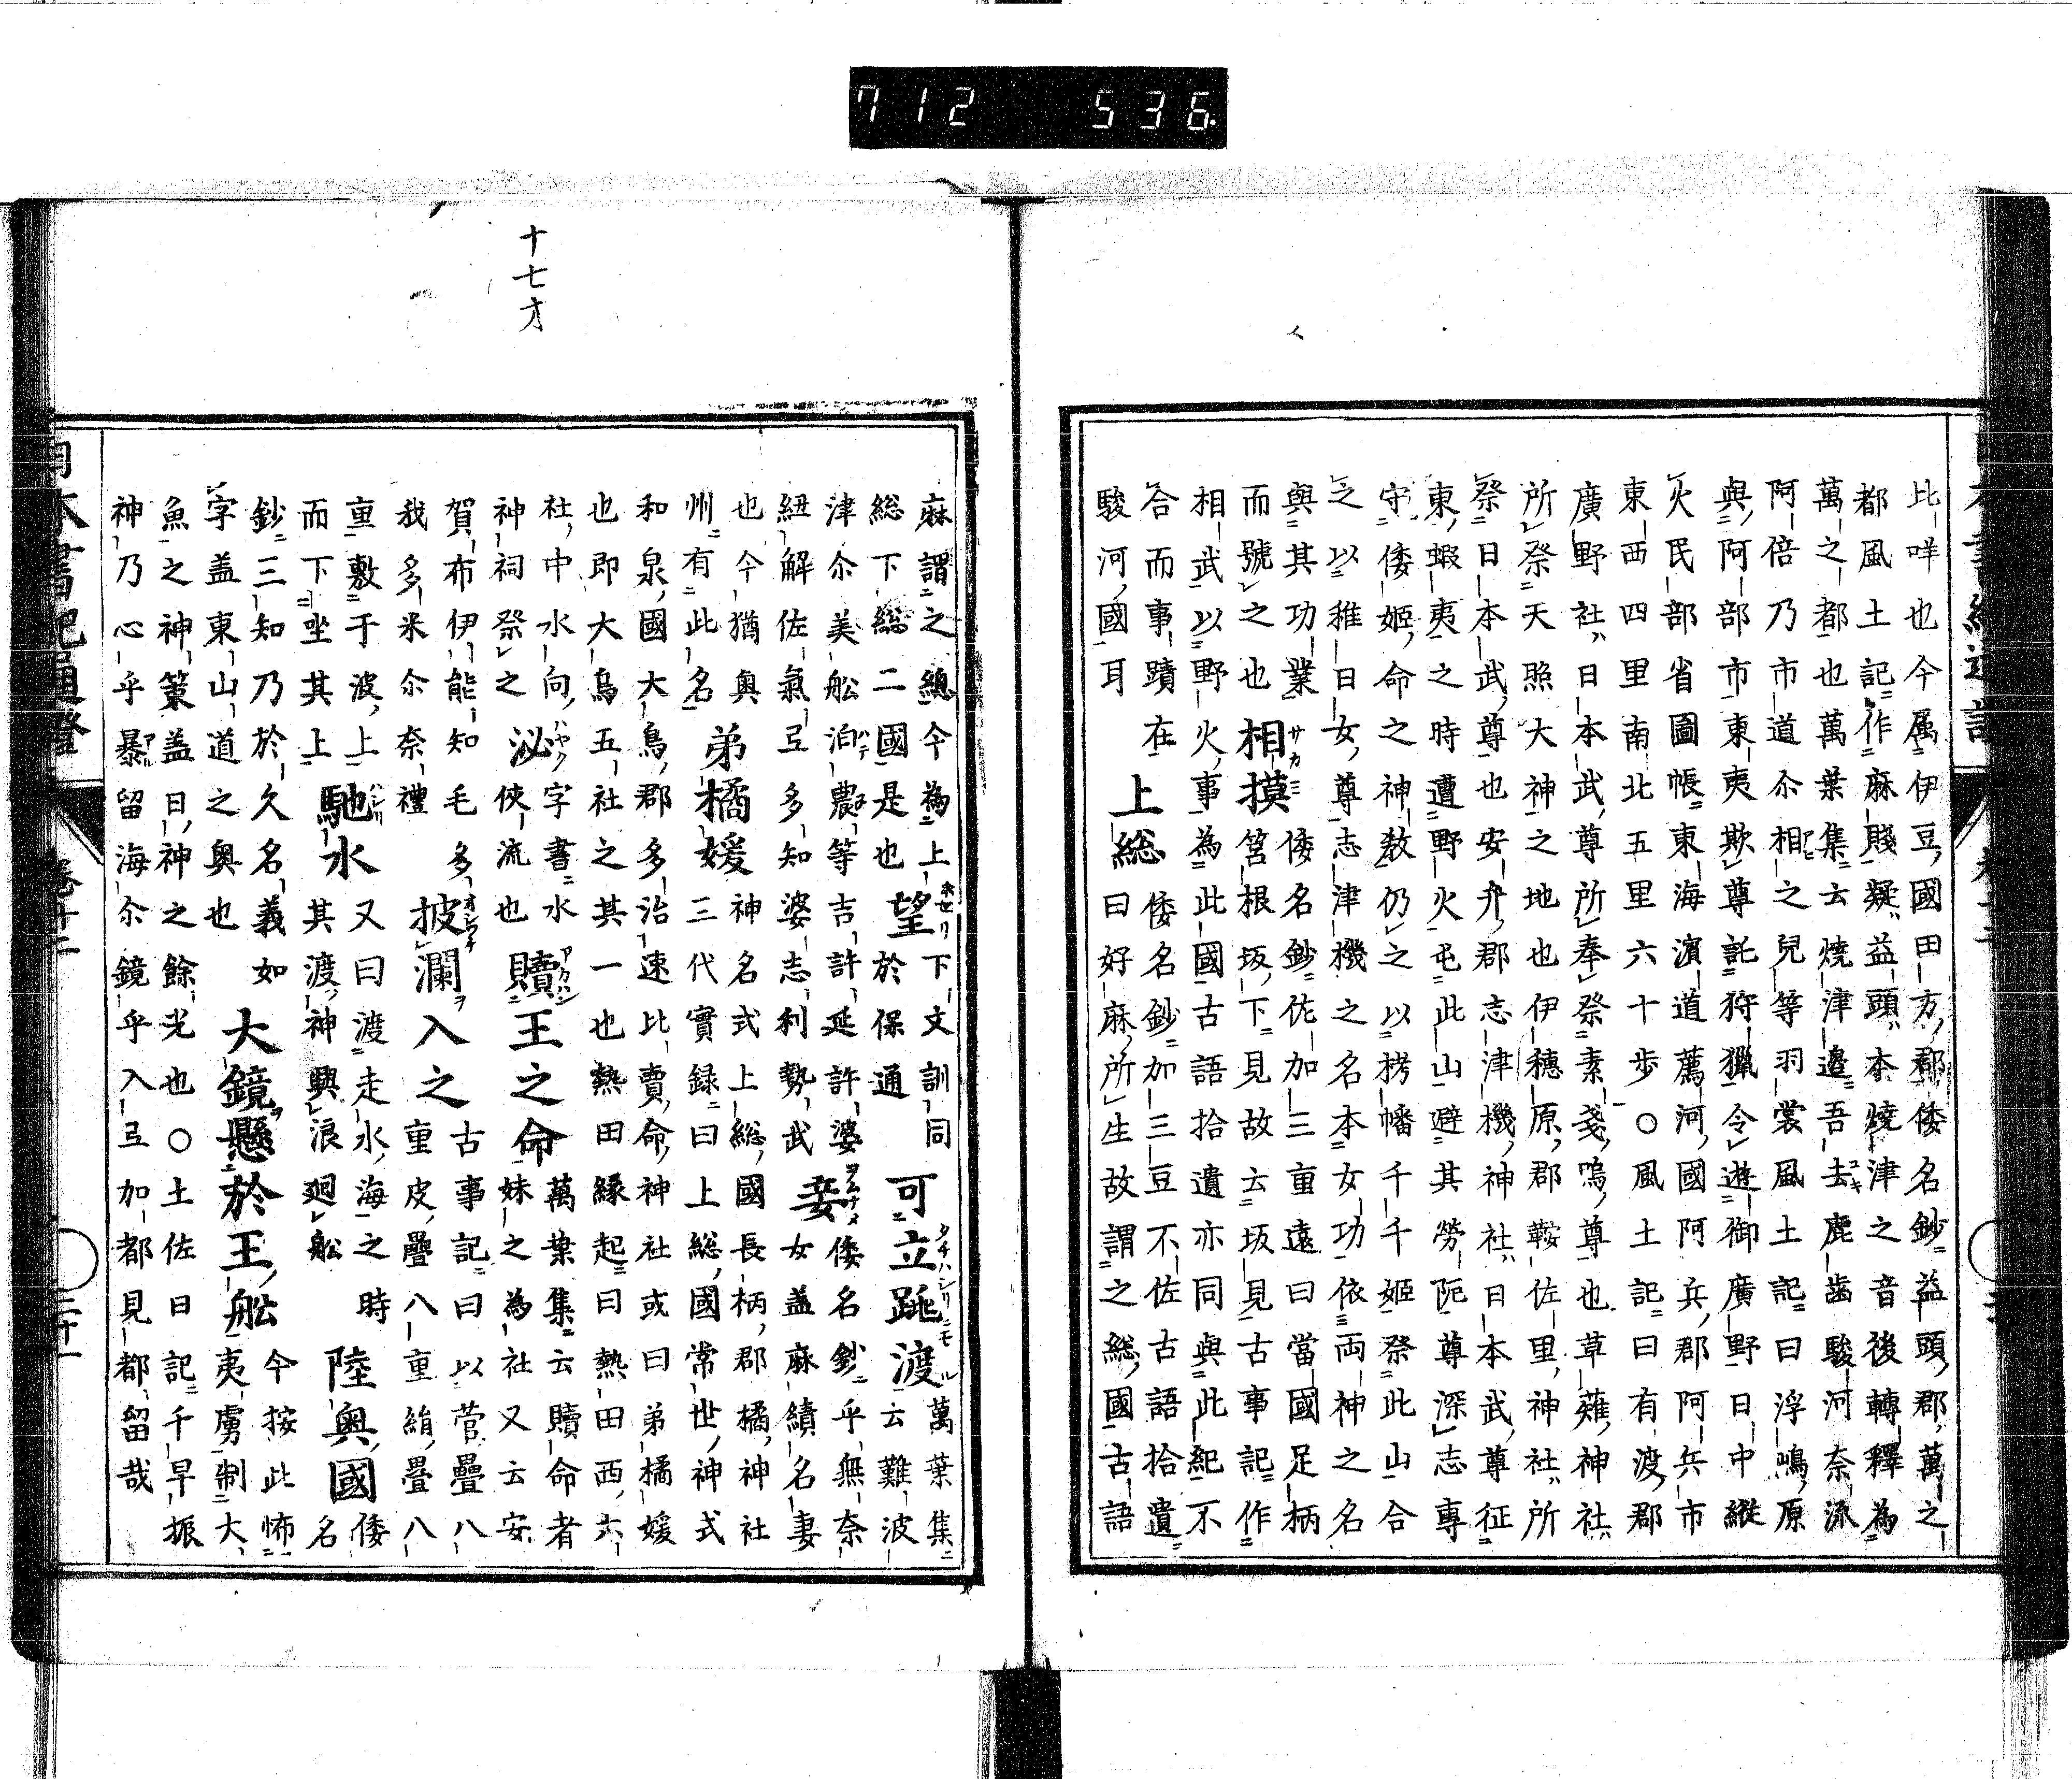 712 536
比咩也今属伊豆國田方郡倭名鈔益頭郡萬之
都風土記作麻賤疑益頭本燒津之音後轉釋為
萬之都也萬葉集云燒津邊吾去鹿齒駿河奈流
阿倍乃市道尒相之兒等羽裳風土記曰浮嶋原
與阿部市東夷欺尊託狩獵令遊御廣野日中縱
火民部省圖帳東海濵道薦河國阿兵郡阿兵市
東西四里南北五里六十歩〇風土記曰有渡郡
廣野社日本武尊所奉祭素戔嗚尊也草薙神社
所祭天照大神之地也伊穗原郡鞍佐里神社所
祭日本武尊也安弁郡志津機神社日本武尊征
東蝦夷之時遭野火屯此山避其勞阨尊深志專
守倭姬命之神教仍之以栲幡千千姬祭此山合
之以稚日女尊志津機之名本女功依両神之名
與其功業
而號之也
相摸
サカミ
倭名鈔佐加三重遠曰當國足柄
筥根坂下見故云坂見古事記作
相武以野火事為此國古語拾遺亦同與此紀不
合而事蹟在
駿河國耳
上総
倭名鈔加三豆不佐古語拾遺
曰好麻所生故謂之總國古語
十七才
麻謂之總今為上下文訓同
総下総二國是也
望
ホセリ
於保通
可立跳渡
タチハシリニモ
萬葉集
云難波
津尒美舩泊農等吉許延許婆
紐解佐氣弖多知婆志利勢武
妾
ヲムナメ
倭名鈔乎無奈
女盖麻績名妻
也今猶奥
州有此名
弟橘媛
神名式上総國長柄郡橘神社
三代實録曰上総國常世神式
和泉國大鳥郡多治速比賣命神社或曰弟橘媛
也即大鳥五社之其一也熱田縁起曰熱田西六
社中水向
神祠祭之
泌
ハヤク
字書水
使流也
贖王之命
アカハン
萬葉集云贖命者
妹之為社又云安
賀布伊能知毛多
我多米尒奈禮
披瀾入之
オシワケ
古事記曰以菅疊八
重皮疊八重絹疊八
重敷于波上
而下坐其上
馳水
ハシリ
又曰渡走水海之時
其渡神興浪廻舩
陸奥國
倭名
鈔三知乃於久名義如
字盖東山道之奥也
大鏡懸於王舩
今按此怖
夷虜制大
魚之神策盖日神之餘光也〇土佐日記千早振
神乃心乎暴留海尒鏡乎入弖加都見都留哉
日本書紀通證 卷十二 三十一